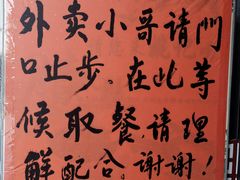 外卖小哥请門
口止步。在此等
候取餐，请理
解配合。谢谢！